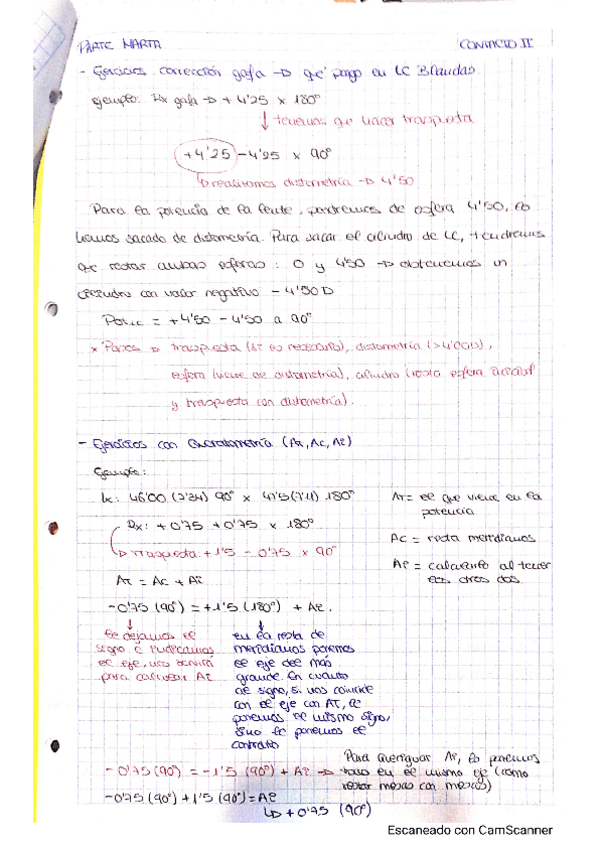 PARTE MARTA CONTACTO II
- Ejercicios corrección gafa → qué pongo en LC Blandas
ejemplo: Rx gafa → +4'25 x 180º
↓ tenemos que hacer traspuesta
+4'25 -4'25 x 90º
↳ realizamos distometría → 4'50
Para la potencia de la lente, pondremos de esfera 4'50, lo
hemos sacado de distometría. Para sacar el cilindro de LC, tendremos
que restar ambas esferas: 0 y 4'50 → obtenemos un
cilindro con valor negativo -4'50D
= +4'50 - 4'50 a 90º
* Pasos → traspuesta (si es necesario), distometría (>4'00D),
esfera (viene de distometría), cilindro (resta esfera inicial
y traspuesta con distometría).
- Ejercicios con Queratometría (AT, AC, AI)
Ejemplo:
K: 46'00 (7'34) 90º x 47'5 (7'11) 180º
AT = el que viene en la
potencia
Rx: +0'75 +0'75 x 180º
AC = resta meridianos
↳ Traspuesta: +1'5 - 0'75 x 90º
AI = calcularlo al tener
los otros dos.
AT = AC + AI
-0'75 (90º) = +1'5 (180º) + AI.
↓ ↓
Le dejamos el
signo e indicamos
el eje, nos servirá
para calcular AI
en la resta de
meridianos ponemos
el eje del más
grande. En cuanto
al signo, si nos coincide
con el eje con AT, le
ponemos el mismo signo,
sino le ponemos el
contrario
Para averiguar AI, lo ponemos
todo en el mismo eje (como
restar mesas con mesas)
-0'75 (90º) = -1'5 (90º) + AI →
-0'75 (90º) + 1'5 (90º) = AI
↳ +0'75 (90º)
Escaneado con CamScanner